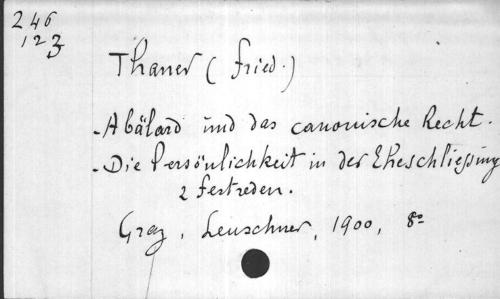 246
123
Thaner (Fried.)
- Abälard und das canonische Recht.
- Die Persönlichkeit in der Eheschliessung
2 Festreden.
Graz, Leuschner, 1900, 8º